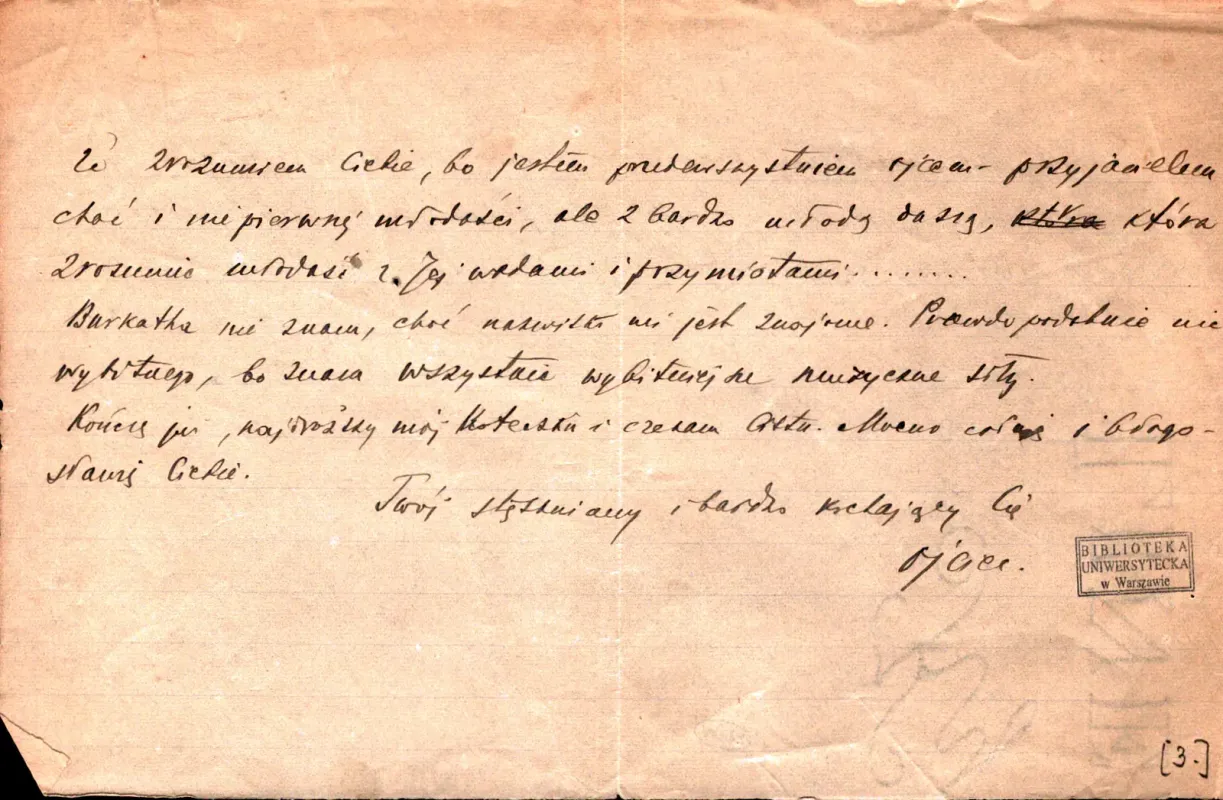 że zrozumiem Ciebie, bo jestem przedewszystkiem ojcem - przyjacielem
choć i nie pierwszej młodości, ale z bardzo młodą duszą, ~~która~~ która
zrozumie młodość z Jej wadami i przymiotami.........
Burkatha nie znam, choć nazwisko mi jest znajome. Prawdopodobnie nic
wybitnego, bo znam wszystkie wybitniejsze muzyczne siły.
Kończę już, najdroższy mój Koteczku i czekam listu. Mocno całuję i błogo-
sławię Ciebie.
Twój stęskniony i bardzo kochający Cię
ojciec.
BIBLIOTEKA
UNIWERSYTECKA
w Warszawie
[3.]